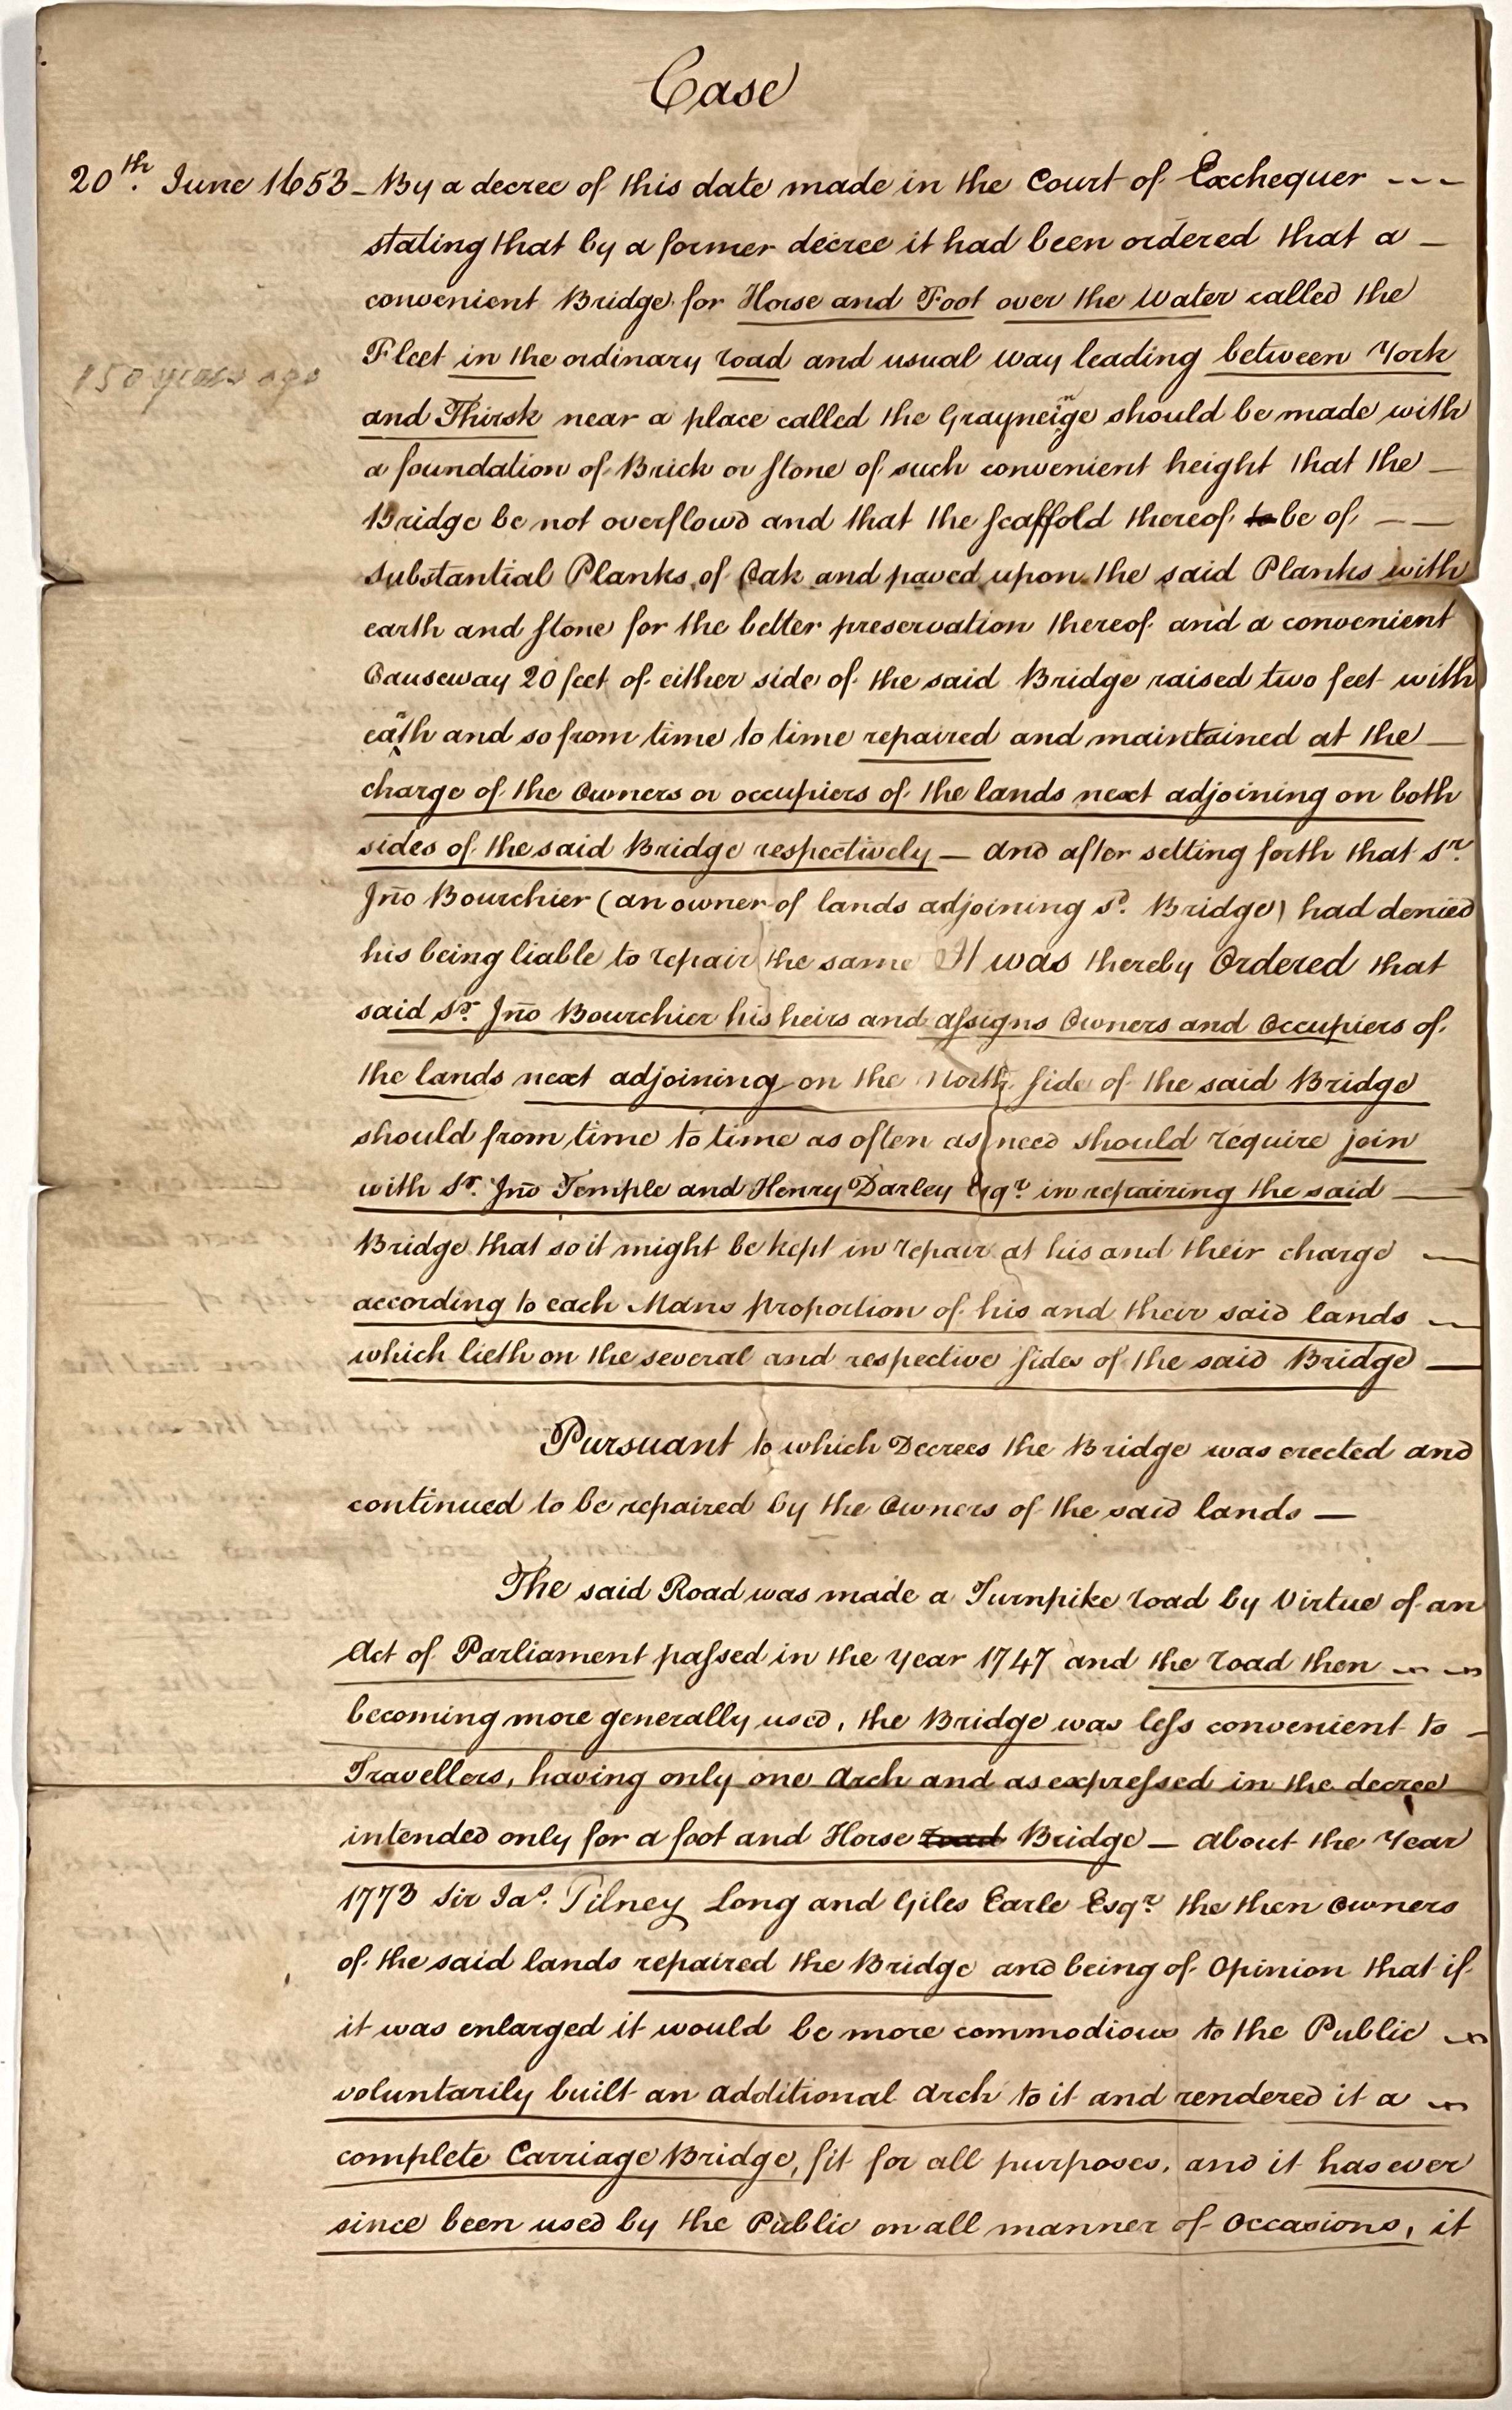 Case
20th. June 1653 - By a decree of this date made in the Court of Exchequer - - -
stating that by a former decree it had been ordered that a -
convenient Bridge for Horse and Foot over the Water called the
Fleet in the ordinary road and usual way leading between York
150 years ago
and Thirsk near a place called the should be made with
a foundation of Brick or Stone of such convenient height that the -
Bridge be not overflowd and that the Scaffold thereof to be of - -
substantial Planks of Oak and paved upon the said Planks with
earth and Stone for the better preservation thereof and a convenient
Causeway 20 feet of either side of the said Bridge raised two feet with
earth and so from time to time repaired and maintained at the -
charge of the Owners or occupiers of the lands next adjoining on both
sides of the said Bridge respectively - and after setting forth that Sr.
Jno Bourchier (an owner of lands adjoining sd. Bridge) had denied
his being liable to repair the same It was thereby Ordered that
said Sr. Jno Bourchier his heirs and assigns Owners and Occupiers of
the lands next adjoining on the North Side of the said Bridge
should from time to time as often as need should require join
with Sr. Jno Temple and Henry Darley Esqr. in repairing the said -
Bridge that so it might be kept in repair at his and their charge -
according to each Mans proportion of his and their said lands -
which lieth on the several and respective Sides of the said Bridge -
Pursuant to which Decrees the Bridge was erected and
continued to be repaired by the Owners of the said lands -
The said Road was made a Turnpike road by Virtue of an
Act of Parliament passed in the Year 1747 and the road then - -
becoming more generally used, the Bridge was less convenient to -
Travellers, having only one Arch and as expressed in the decree
intended only for a foot and Horse road Bridge - about the Year
1773 Sir Jas. Tilney Long and Giles Earle Esqr. the then owners
of the said lands repaired the Bridge and being of Opinion that if
it was enlarged it would be more commodious to the Public -
voluntarily built an additional Arch to it and rendered it a -
complete Carriage Bridge, fit for all purposes, and it has ever
since been used by the Public on all manner of Occasions, it